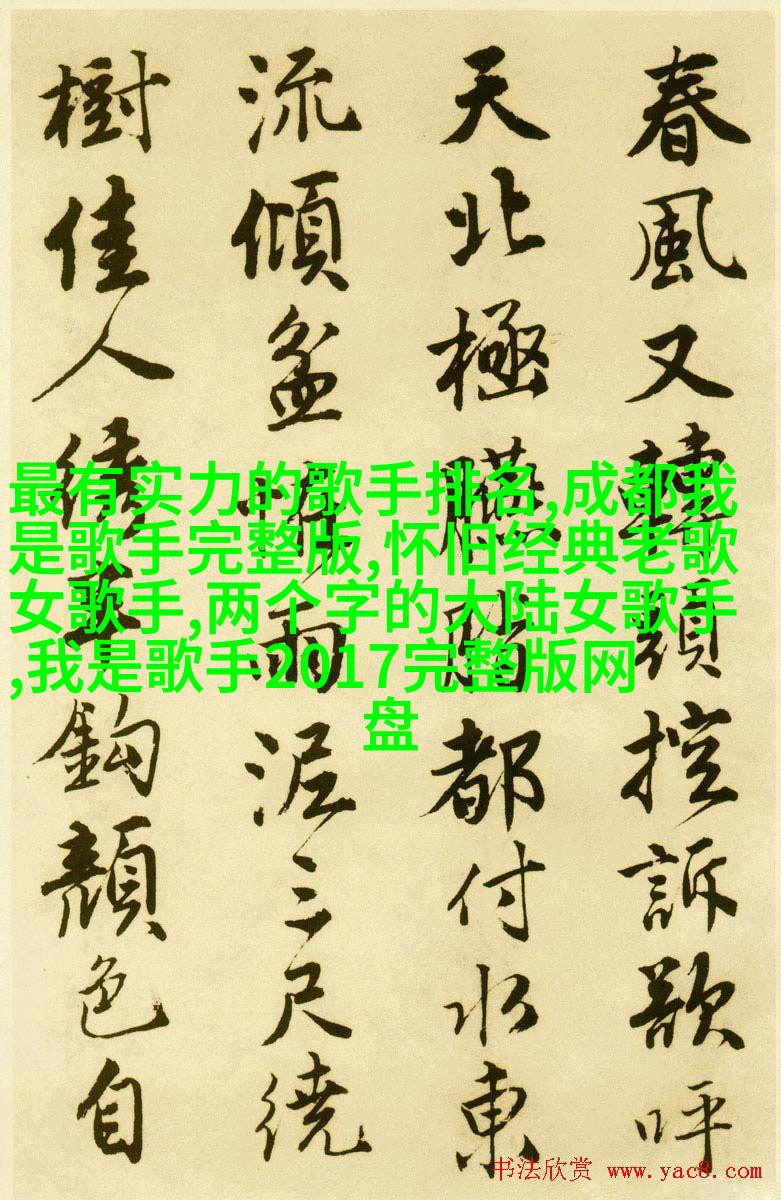 春風又頭控訴歌呼
天北極都付水東
流傾盆雨泥三尺繞
樹佳人鈎顏色自
最有实力的歌手排名,成都我
是歌手完整版,怀旧经典老歌
女歌手,两个字的大陆女歌手
,我是歌手2017完整版网
盘
书法欣赏 www.yac8.com